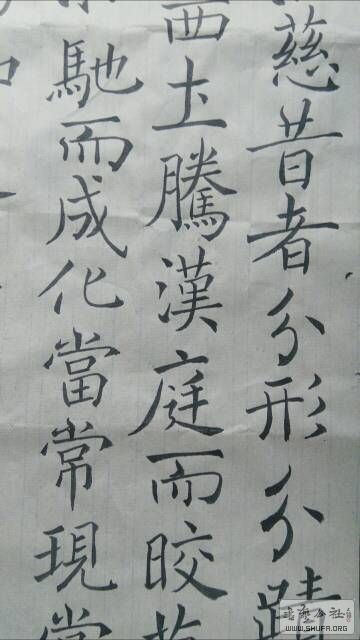 慈昔者分形分蹟
西土騰漢庭而晈
馳而成化當常現常
WWW.SHUFA.ORG